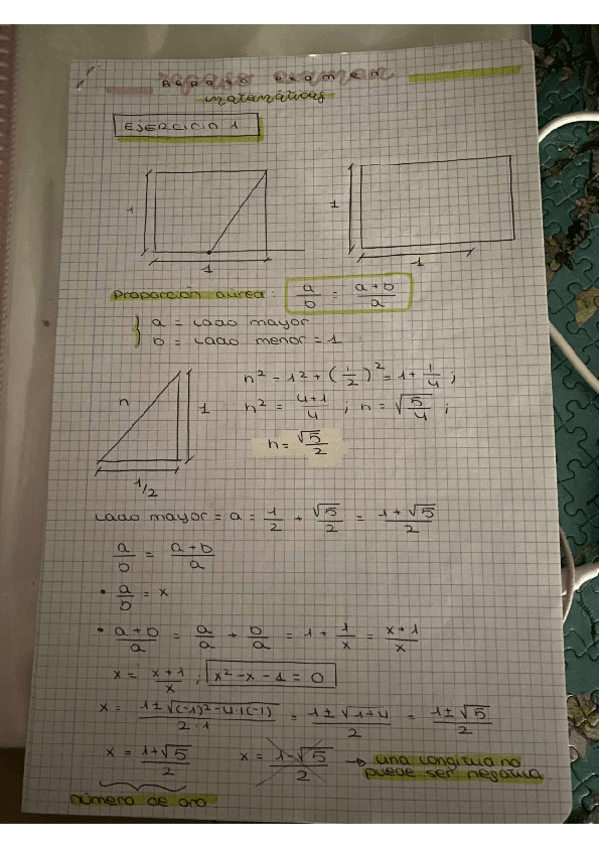 Repaso examen
matemáticas
EJERCICIO 1
1
1
1
1
Proporción aúrea: a/b = a+b/a
a = lado mayor
b = lado menor = 1
h² = 1² + (1/2)² = 1 + 1/4 ;
h 1 h² = 4+1/4 ; h = √5/4 ;
h = √5/2
1/2
Lado mayor = a = 1/2 + √5/2 = 1+√5/2
a/b = a+b/a
• a/b = x
• a+b/a = a/a + b/a = 1 + 1/x = x+1/x
x = x+1/x ; x² - x - 1 = 0
x = 1±√(-1)²-4·1(-1)/2·1 = 1±√1+4/2 = 1±√5/2
x = 1+√5/2 x = 1-√5/2 → una longitud no
puede ser negativa
número de oro